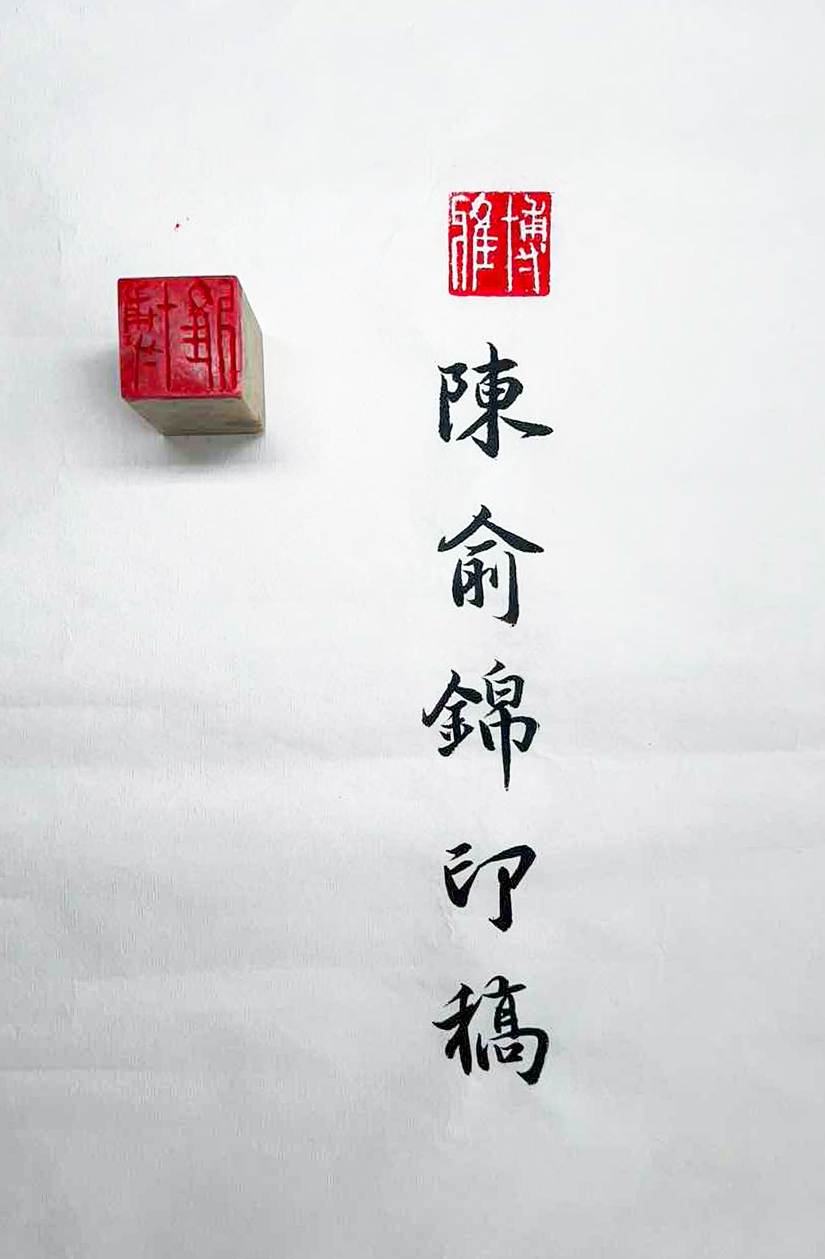 博雅
陳俞錦印稿